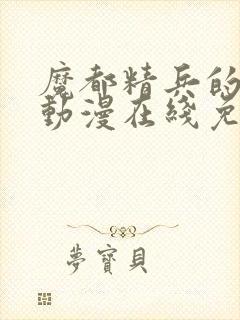 魔都精兵的
動漫在綫免
夢寶貝